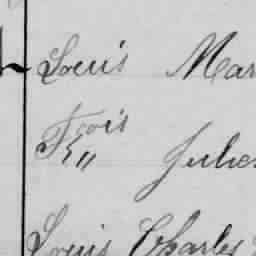 Louis Mar
Fçois Jules
Louis Charles